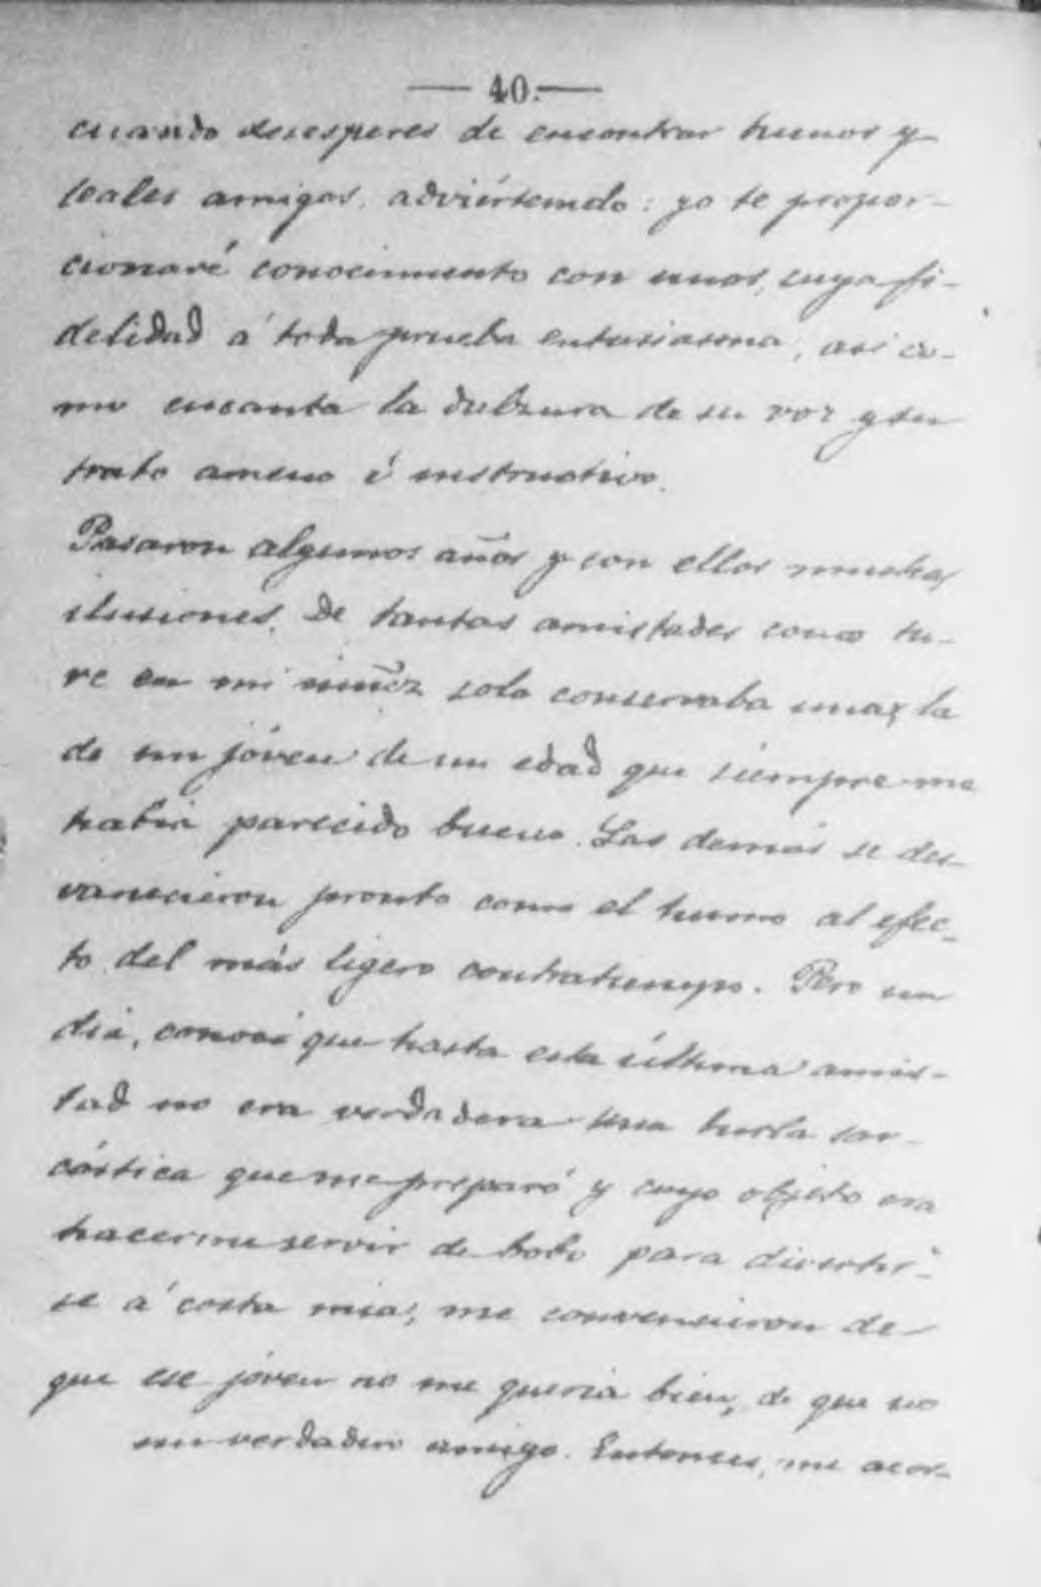 — 40. —
cuando desesperes de encontrar buenos y
leales amigos, adviértemelo: yo te propor-
cionaré conocimiento con unos, cuya fi-
delidad á toda prueba entusiasma, asi co-
mo encanta la dulzura de su voz y su
trato ameno é instructivo.
Pasaron algunos años y con ellos muchas
ilusiones. De tantas amistades como tu-
ve en mi niñez solo conservaba una, la
de un jóven de mi edad que siempre me
habia parecido bueno. Las demás se des-
vanecieron pronto como el humo al efec-
to del más ligero contratiempo. Pero un
dia, conocí que hasta esta última amis-
tad no era verdadera. Una burla sar-
cástica que me preparó y cuyo objeto era
hacerme servir de bobo para divertir-
se á costa mia, me convencieron de
que ese jóven no me queria bien, de que no
mi verdadero amigo. Entonces, me acor-